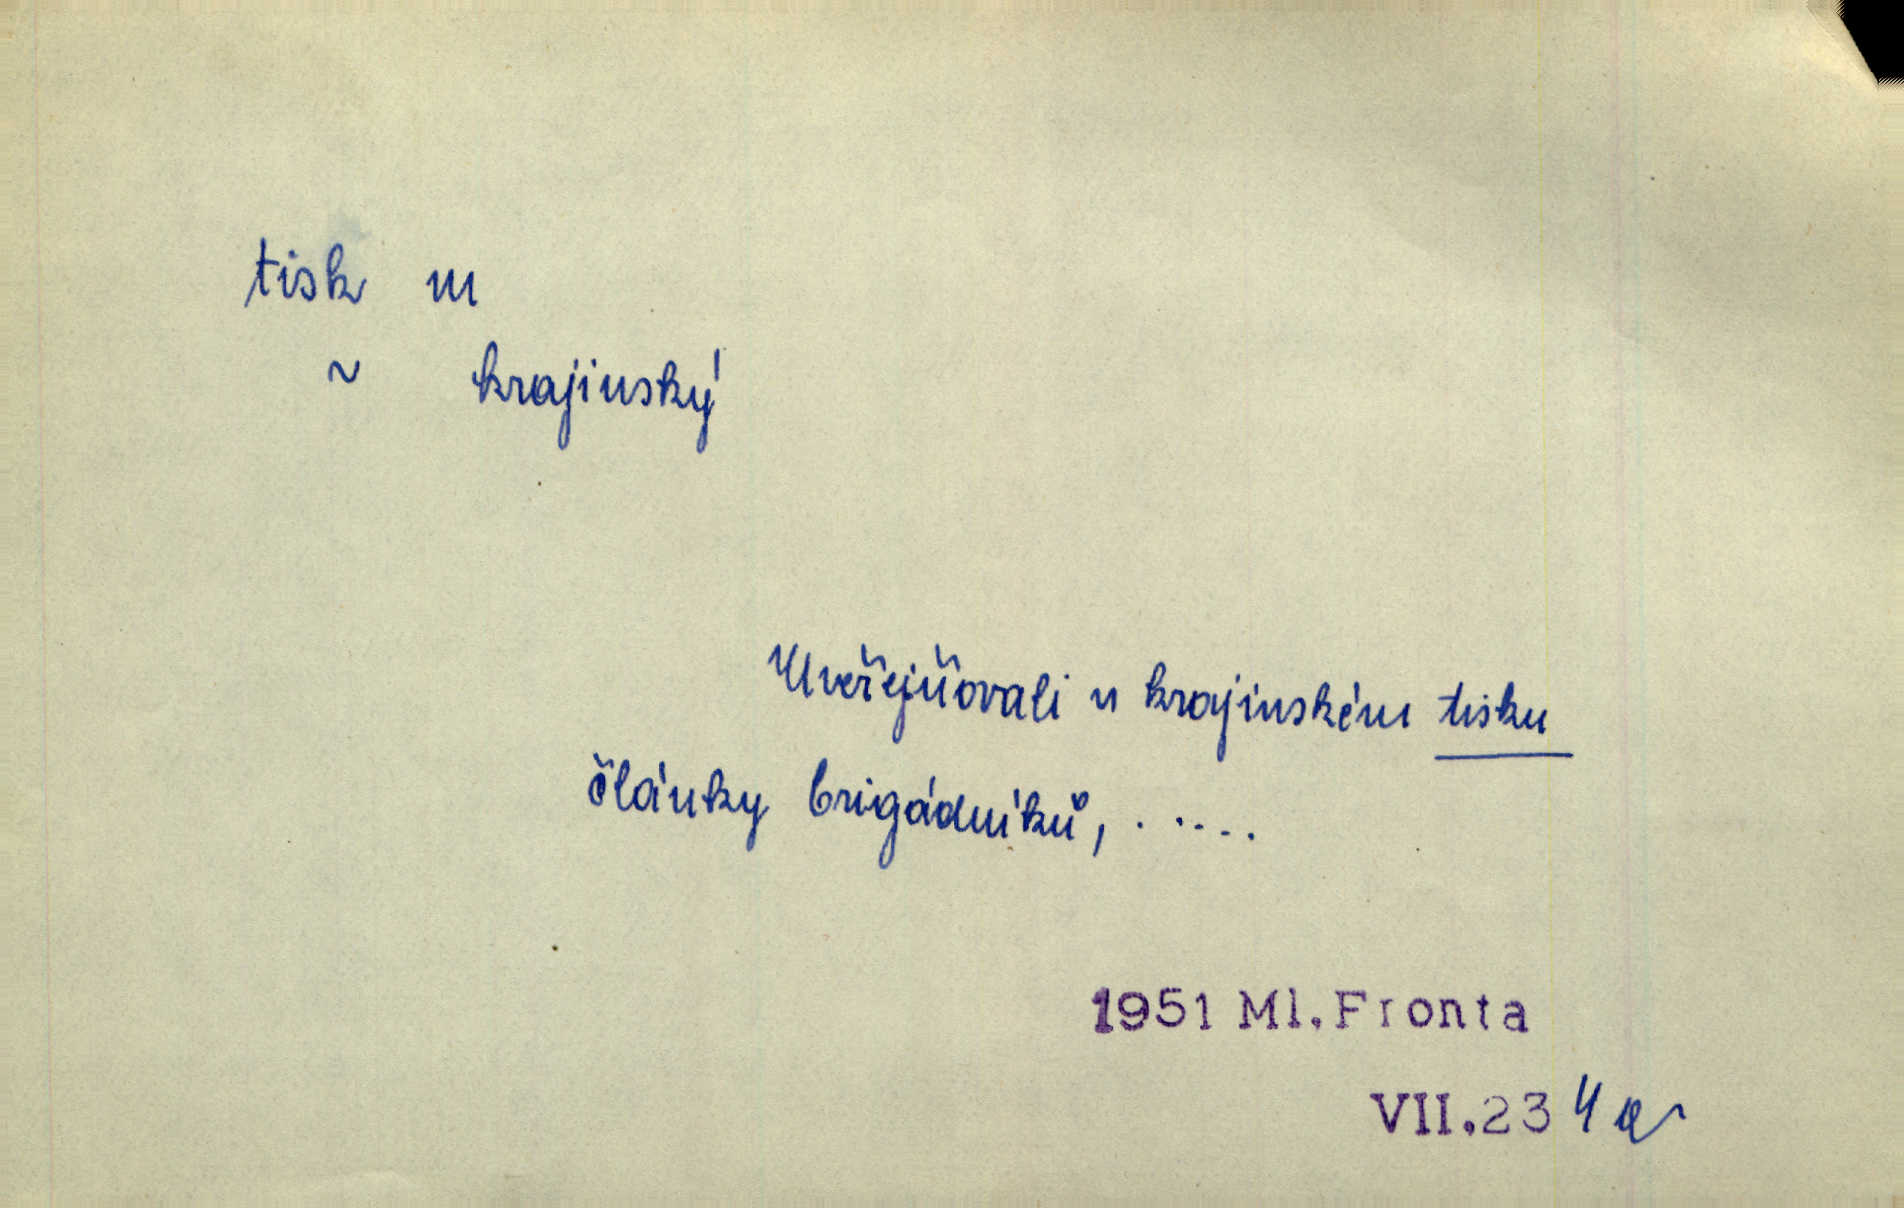 tisk m
~ krajinský
Uveřejňovali v krajinském tisku
články brigádníků, .....
1951 Ml.Fronta
VII.23 4 a